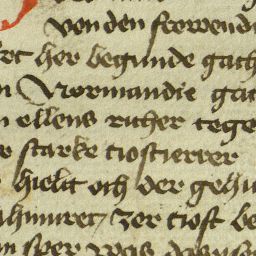 von den frowen di
her begunde gach
Normandie gac
ellens richer tege
starke tiostierrer
hielt och der gehu
zer tiost be
sper was